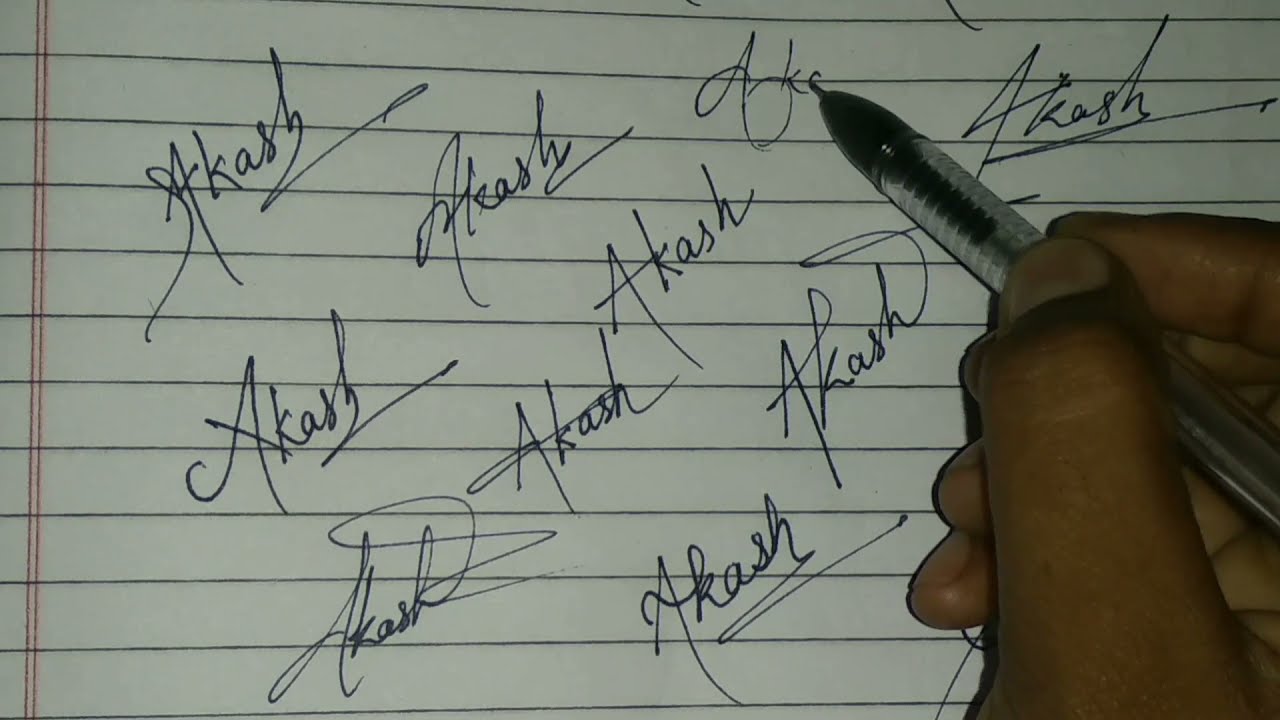 Aka
Akash
Akash
Akash
Akash
Akash
Akash
Akash
Akash
Akash